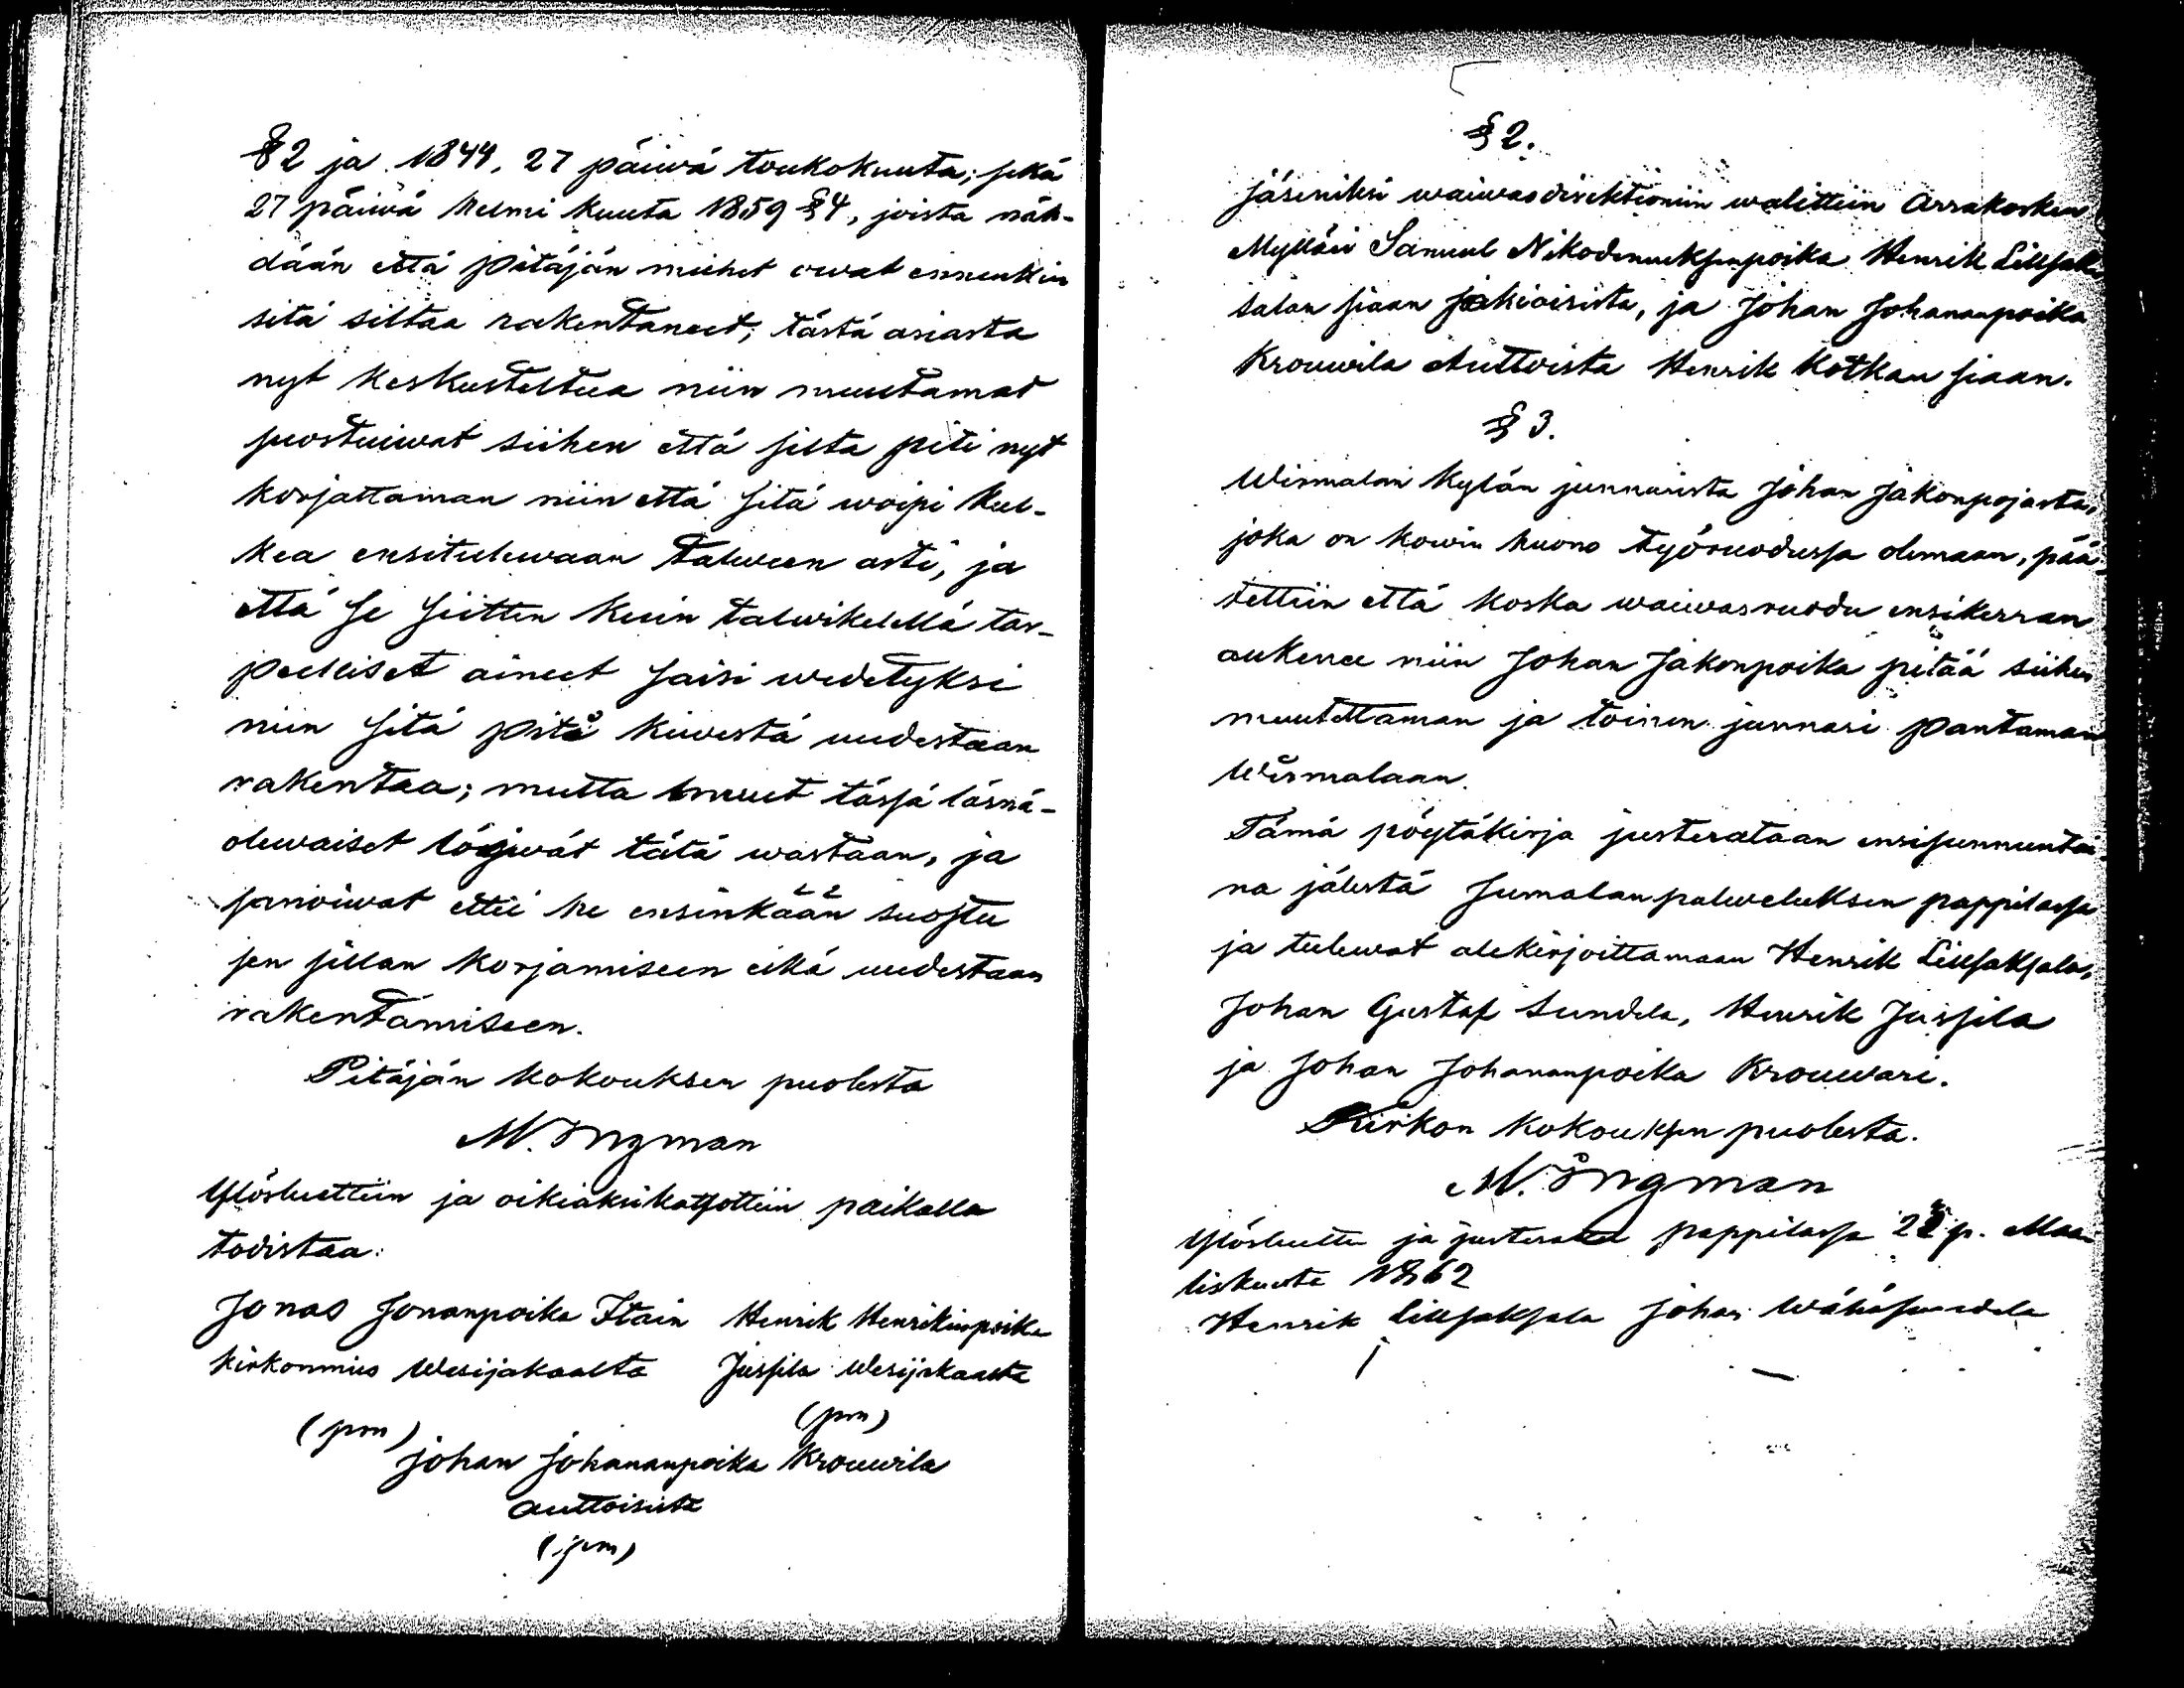 §2 ja 1844, 27 päiwä toukokuuta; sekä
27 päiwä helmi kuuta 1859 §4, joista näh-
dään että pitäjän miehet owat ennenkin
sitä siltaa rakentaneet; tästä asiasta
nyt keskusteltua niin muutamat
suostuiwat siihen että silta piti nyt
korjattaman niin että sitä woipi kul-
kea ensitulewaan talween asti, ja
että se siitten kuin talwikelillä tar-
peelliset aineet saisi wedetyksi
niin sitä pitä kiwestä uudestaan
rakentaa; mutta muut tässä läsnä-
olewaiset löiwät tätä wastaan, ja
sanoiwat ettei he ensinkään suostu
sen sillan korjamiseen eikä uudestaan
rakentamiseen.
Pitäjän kokouksen puolesta
M. Ingman
Ylösluettiin ja oikiaksikatsottiin paikalla
todistaa:
Jonas Jonanpoika Itäin Henrik Henrikinpoika
kirkonmies Wesijakoalta Jussila Wesijakaasta
(pm) (pm)
Johan Johananpoika Krouwila
Auttoisista
(pm)
§2.
Jäseniksi waiwasdirektioniin walittiin Arrakosken
Mylläri Samuel Nikodemuksenpoika Henrik Lillsak
salan siaan Jokioisista, ja Johan Johananpoika
Krouwila Auttoista Henrik Kotkan siaan.
§3.
Wirmalan kylän junnarista Johan Jakonpojasta,
joka on kowin huono työruodussa olemaan, pää-
tettiin että koska waiwasruodu ensikerran
aukenee niin Johan Jakonpoika pitää siihen
muutettaman ja toinen junnari pantaman
Wirmalaan.
Tämä pöytäkirja justerataan ensisunnuntai
na jälestä Jumalanpalweluksen pappilassa
ja tulewat alekirjoittamaan Henrik Lillsaksala,
Johan Gustaf Sundela, Henrik Jussila
ja Johan Johananpoika Krouwari.
Kirkon kokouksen puolesta.
M. Ingman
Ylösluettu ja justeratu pappilassa p. Maa
liskuuta 1862
Henrik Lillsaksala Johan Wähäsundela